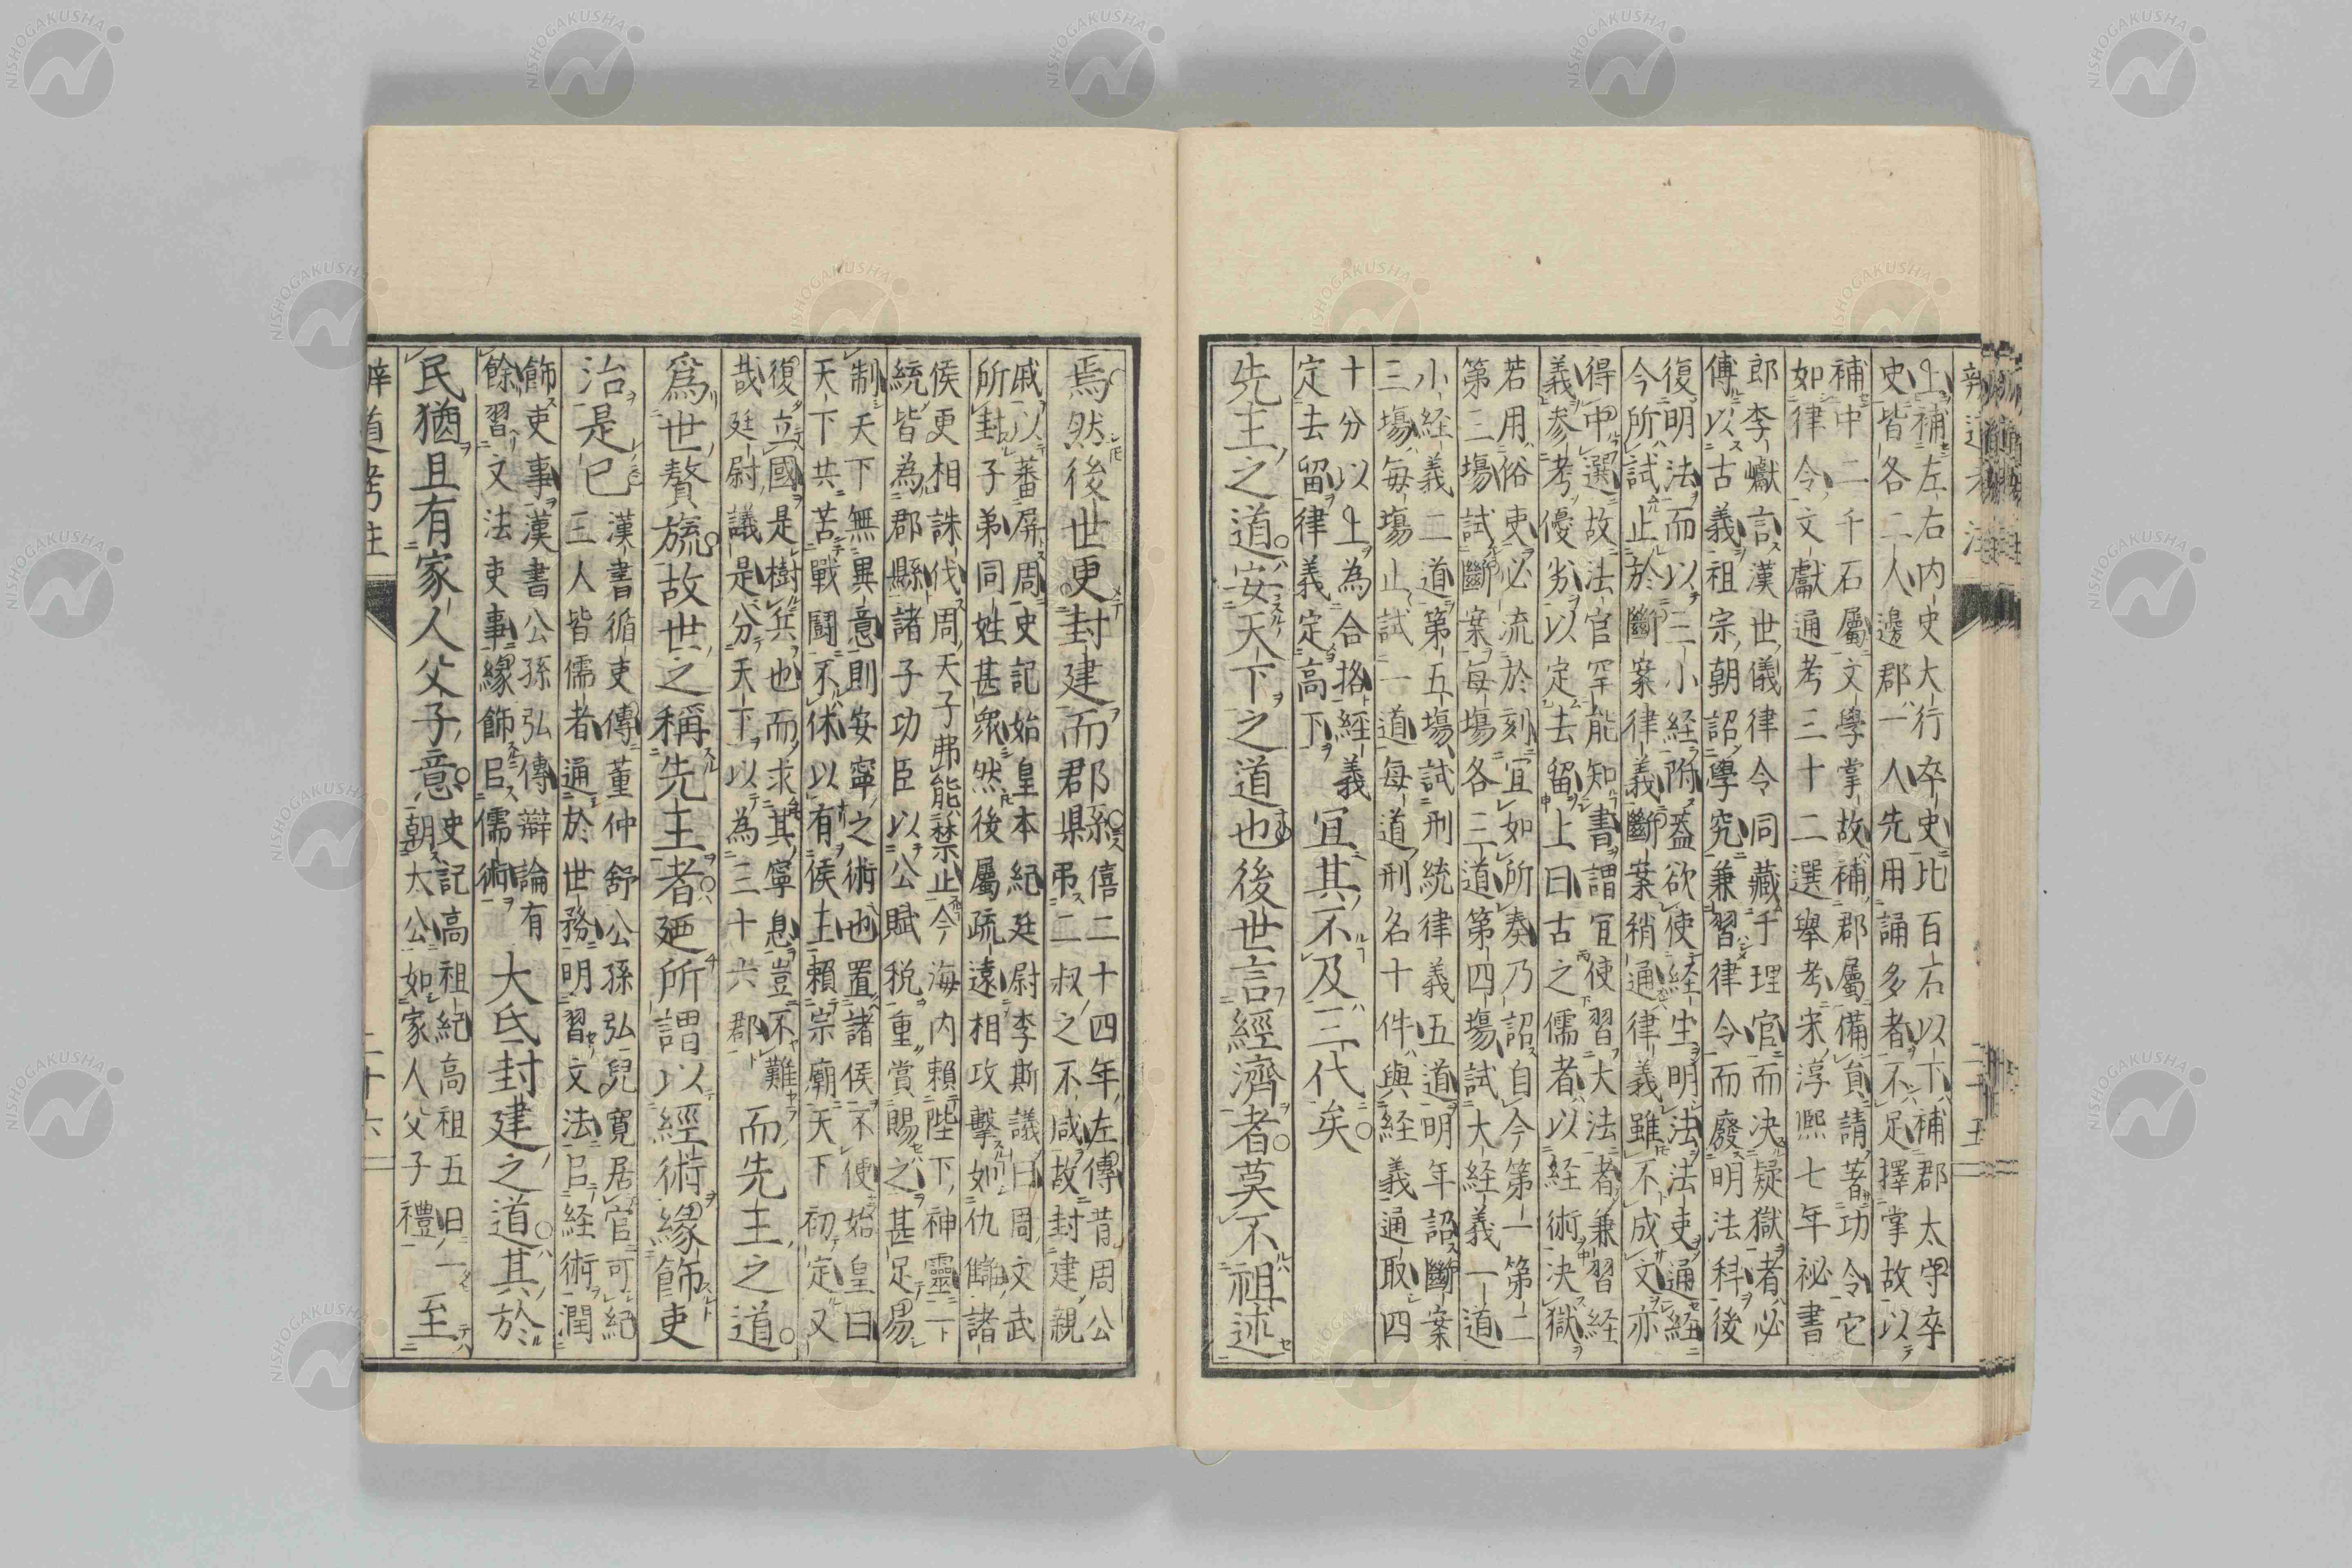 上補左右内史大行卒史比百石以下補郡太守卒
史皆各二人邊郡一人先用誦多者不足擇掌故以
補中二千石屬文學掌故補郡屬備員請著功令它
如律令文獻通考三十二選舉考宋淳熙七年祕書
郎李巘言漢世儀律令同藏于理官而决疑獄者必
傳以古義祖宗朝詔學究兼習律令而廢明法科後
復明法而以三小経附蓋欲使経生明法法吏通経
今所試止於斷案律義斷案稍通律義雖不成文亦
得中選故法官罕能知書謂宜使習大法者兼習経
義参考優劣以定去留上曰古之儒者以経術决獄
若用俗吏必流於刻宜如所奏乃詔自今第一第二
第三塲試斷案每塲各三道第四塲試大経義一道
小経義二道第五塲試刑統律義五道明年詔斷案
三塲每塲止試一道每道刑名十件與経義通取四
十分以上為合挌経義
定去留律義定高下
宜其不及三代矣
先王之道安天下之道也後世言經濟者莫不祖述
焉然後世更封建而郡縣
僖二十四年左傳昔周公
弔二叔之不咸故封建親
戚以蕃屏周史記始皇本紀廷尉李斯議曰周文武
所封子弟同姓甚衆然後屬疏遠相攻擊如仇讎諸
侯更相誅伐周天子弗能禁止今海内賴陛下神靈一
統皆為郡縣諸子功臣以公賦税重賞賜之甚足易
制天下無異意則安寧之術也置諸侯不便始皇曰
天下共苦戰鬪不休以有侯王賴宗廟天下初定又
復立國是樹兵也而求其寧息豈不難
哉廷尉議是分天下以為三十六郡
而先王之道
爲世贅旒故世之稱先王者廼所謂以經術緣飾吏
治是已
漢書循吏傳董仲舒公孫弘兒寛居官可紀
三人皆儒者通於世務明習文法以経術潤
飾吏事漢書公孫弘傳辯論有
餘習文法吏事緣飾以儒術
大氐封建之道其於
民猶且有家人父子意
史記高祖紀高祖五日一
朝太公如家人父子禮
至
二十六